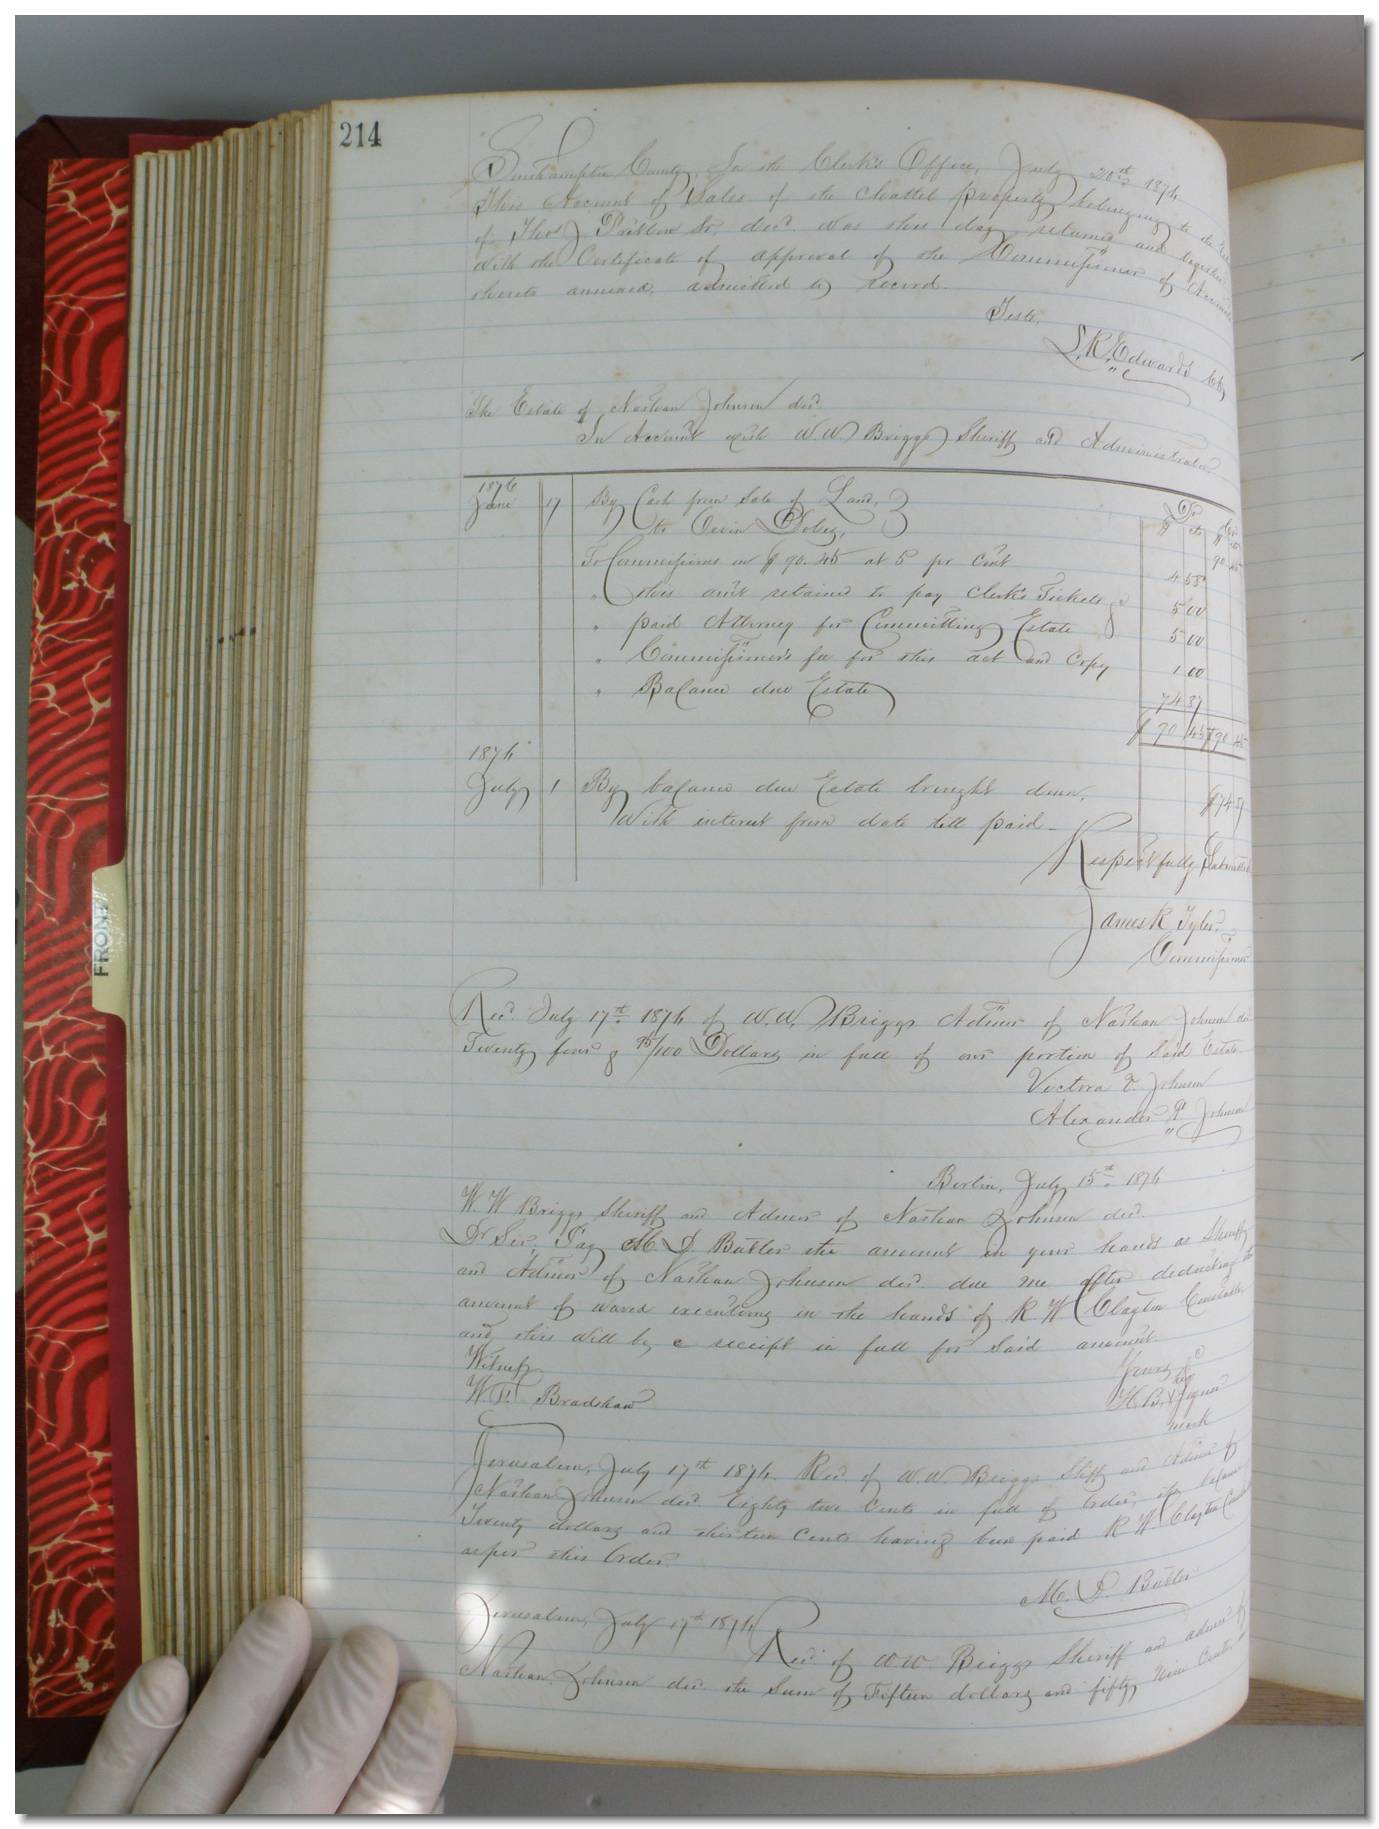 214
Southampton County, In the Clerk's Office, July 20th 1874
This Account of Sales of the chattel property belonging to the
of Thos J Pretlow Sr, decd. was this day returned and
with the Certificate of approval of the Commissioner of
thereto annexed, admitted to record.
Teste,
L. R. Edwards
The Estate of Nathan Johnson decd.
In Account with W.W. Briggs Sheriff and Administrator
Dr Cr
$ cts $
1876
June 17 By Cash from Sale of Land,
to
90 45
To Commissions on $90.45 at 5 pr Cent 4 58
" this amt retained to pay Clerk's Tickets & 5 00
" paid Attorney for Committing Estate 5 00
" Commissioner's fee for this act and Copy 1 00
" Balance due Estate 74 87
$ 90 45 $90 45
1874
July 1 By balance due Estate brought down,
With interest from date till paid $74 87
Respectfully Submitted
James R Tyler
Commissioner
Recd. July 17th 1874 of W.W. Briggs Admr of Nathan Johnson
Twenty four & 95/100 Dollars in full of our portion of Said Estate
Victora Johnson
Alexander P. Johnson
Berlin, July 15th 1874
W W Briggs Sheriff and Admr of Nathan Johnson decd.
Dr Sir, Pay M. D. Butler the amount in your hands as Sheriff
and Admr of Nathan Johnson decd due me after deducting the
amount of waved executions in the hands of R W Clayton Constable
and this will be a receipt in full for said amount
Witness Yours &c
W. T. Bradshaw H. B. Joyner
mark
Jerusalem, July 17th 1874. Recd. of W W Briggs Shff and Admr of
Nathan Johnson decd Eighty two Cents in full of Order, balance
Twenty dollars and thirteen Cents having been paid R W Clayton
as per this Order.
M. D. Butler
Jerusalem, July 17th 1874
Recd of W W Briggs Sheriff and admr of
Nathan Johnson decd. the Sum of Fifteen dollars and fifty nine Cents
FRONT